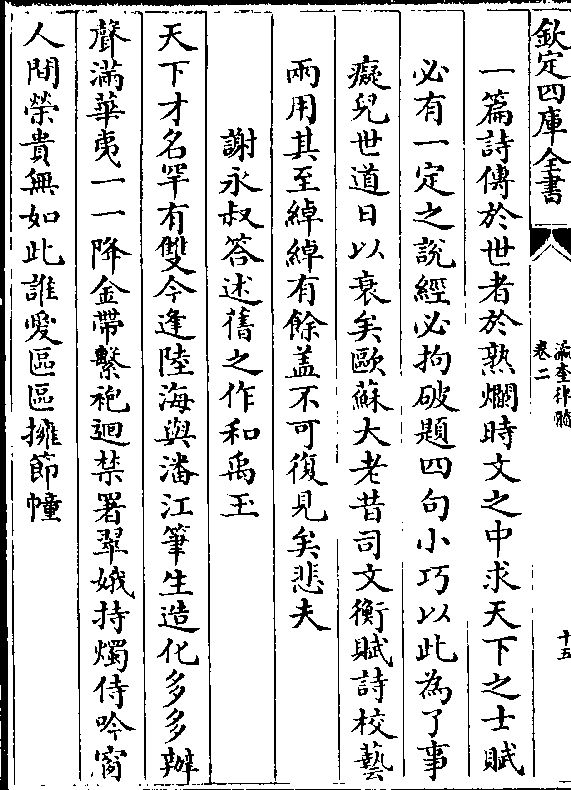 欽定四庫全書
瀛奎律髓
卷二
十五
一篇詩傳於世者於熟爛時文之中求天下之士賦
必有一定之說經必拘破題四句小巧以此為了事
癡兒世道日以衰矣歐蘇大老昔司文衡賦詩校藝
兩用其至綽綽有餘盖不可復見矣悲夫
謝永叔答述舊之作和禹玉
天下才名罕有雙今逢陸海與潘江筆生造化多多辦
聲滿華夷一一降金帶繫袍迴禁署翠娥持燭侍吟窗
人間榮貴無如此誰愛區區擁節幢